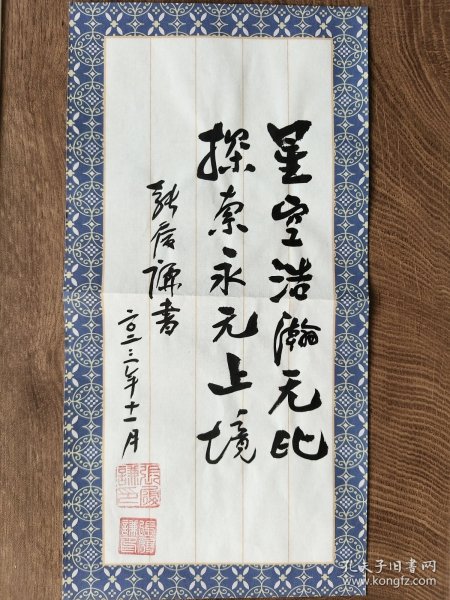 星空浩瀚无比
探索永无止境
张履谦书
二〇二三年十一月
张履谦印
孔夫子旧书网
www.kongfz.com